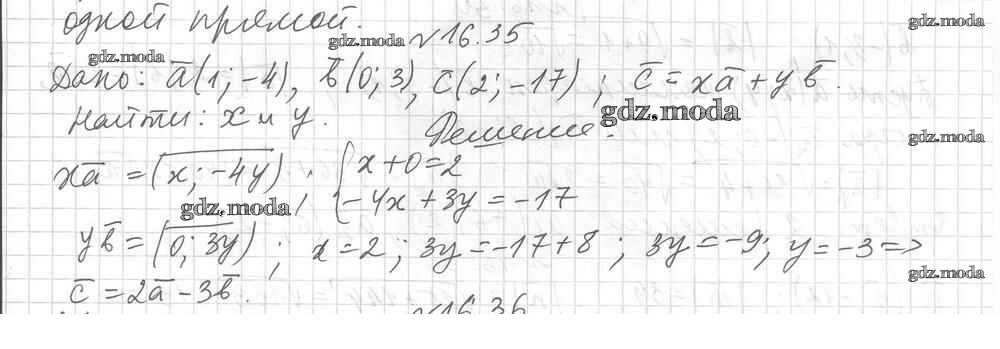 одной прямой.
gdz.moda
gdz.moda
gdz.moda
№16.35
Дано: a̅(1;-4), b̅(0;3), c(2;-17); c̅=xa̅+yb̅.
gdz.moda
Найти: x и y.
Решение:
gdz.moda
xa̅ = (x;-4y); { x+0=2
-4x+3y=-17
gdz.moda
yb̅=(0;3y); x=2; 3y=-17+8; 3y=-9; y=-3=>
gdz.moda
c̅=2a̅-3b̅.
№16.36